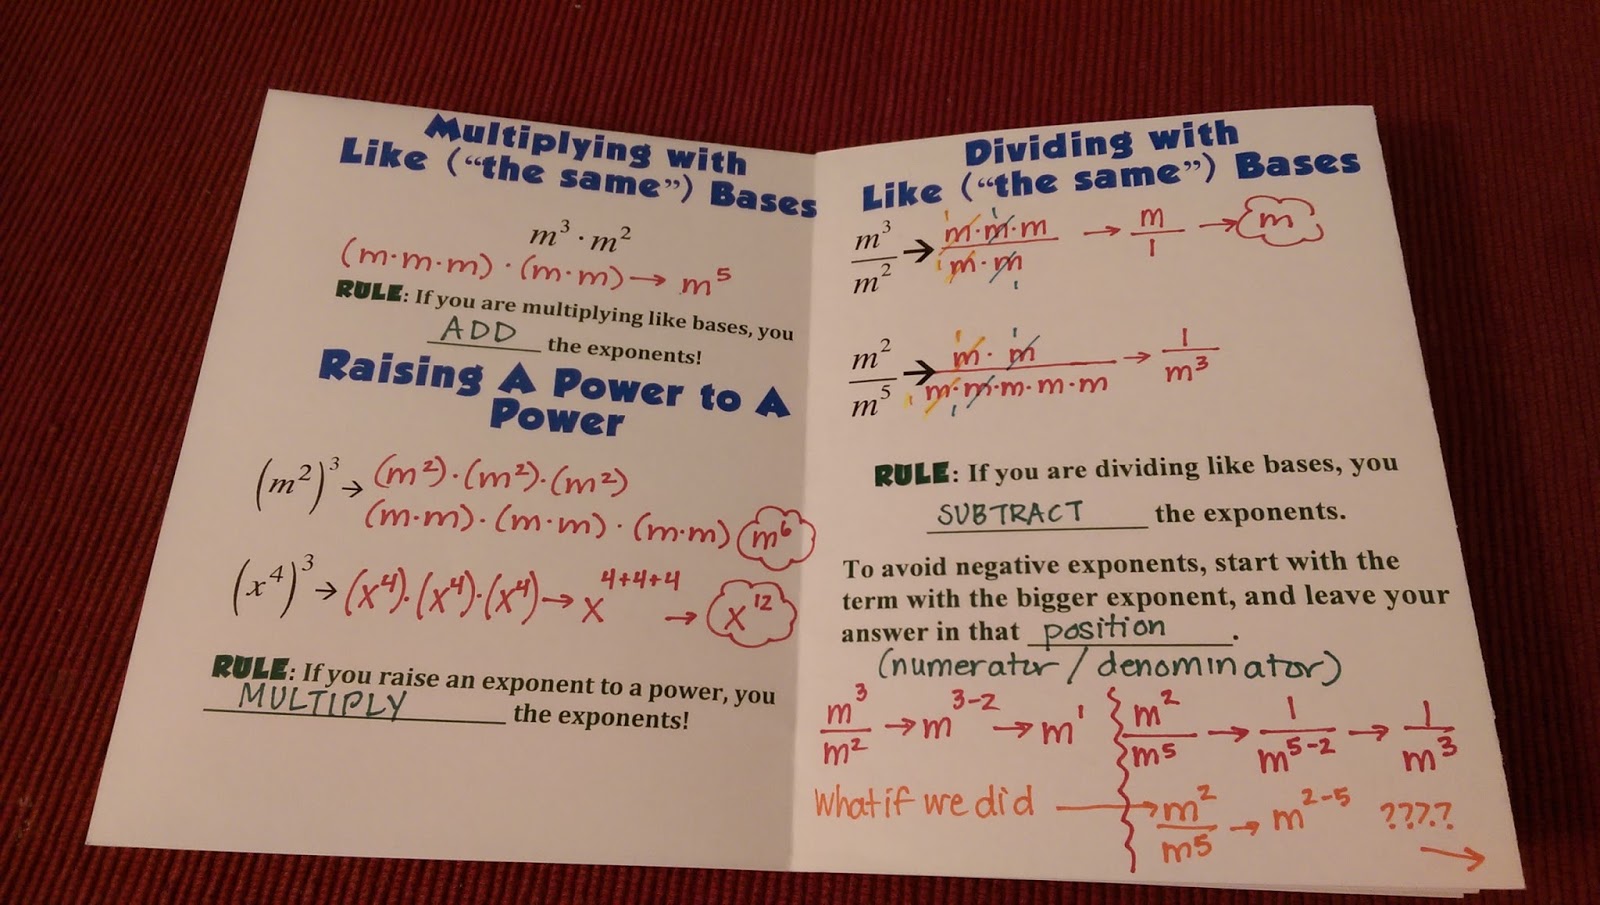 Multiplying with
Like (“the same”) Bases
m³ · m²
(m·m·m) · (m·m) → m⁵
RULE: If you are multiplying like bases, you
ADD the exponents!
Raising A Power to A
Power
(m²)³ → (m²)·(m²)·(m²)
(m·m)·(m·m)·(m·m) m⁶
(x⁴)³ → (x⁴)·(x⁴)·(x⁴) → x⁴⁺⁴⁺⁴ → x¹²
RULE: If you raise an exponent to a power, you
MULTIPLY the exponents!
Dividing with
Like (“the same”) Bases
m³/m² → m·m·m/m·m → m/1 → m
m²/m⁵ → m·m/m·m·m·m·m → 1/m³
RULE: If you are dividing like bases, you
SUBTRACT the exponents.
To avoid negative exponents, start with the
term with the bigger exponent, and leave your
answer in that position.
(numerator / denominator)
m³/m² → m³⁻² → m¹
m²/m⁵ → 1/m⁵⁻² → 1/m³
What if we did → m²/m5 → m²⁻⁵ ???? →